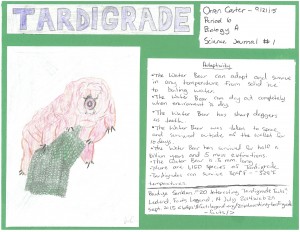 TARDIGRADE
Oren Carter - 9/21/15
Period 6
Biology A
Science Journal #1
Adaptivity
• The Water Bear can adapt and survive
in any temperature from solid ice
to boiling water.
• The Water Bear can dry out completely
when environment is dry.
• The Water Bear has sharp daggers
in teeth.
• The Water Bear was taken to space,
and survived outside of the shuttle for
10 days.
• The Water Bear has survived for half a
billion years and 5 mass extinctions.
• The Water Bear is .5 mm long.
• There are 1,150 species of Tardigrade.
• Tardigrades can survive
temperatures
"20 Interesting Tardigrade Facts"